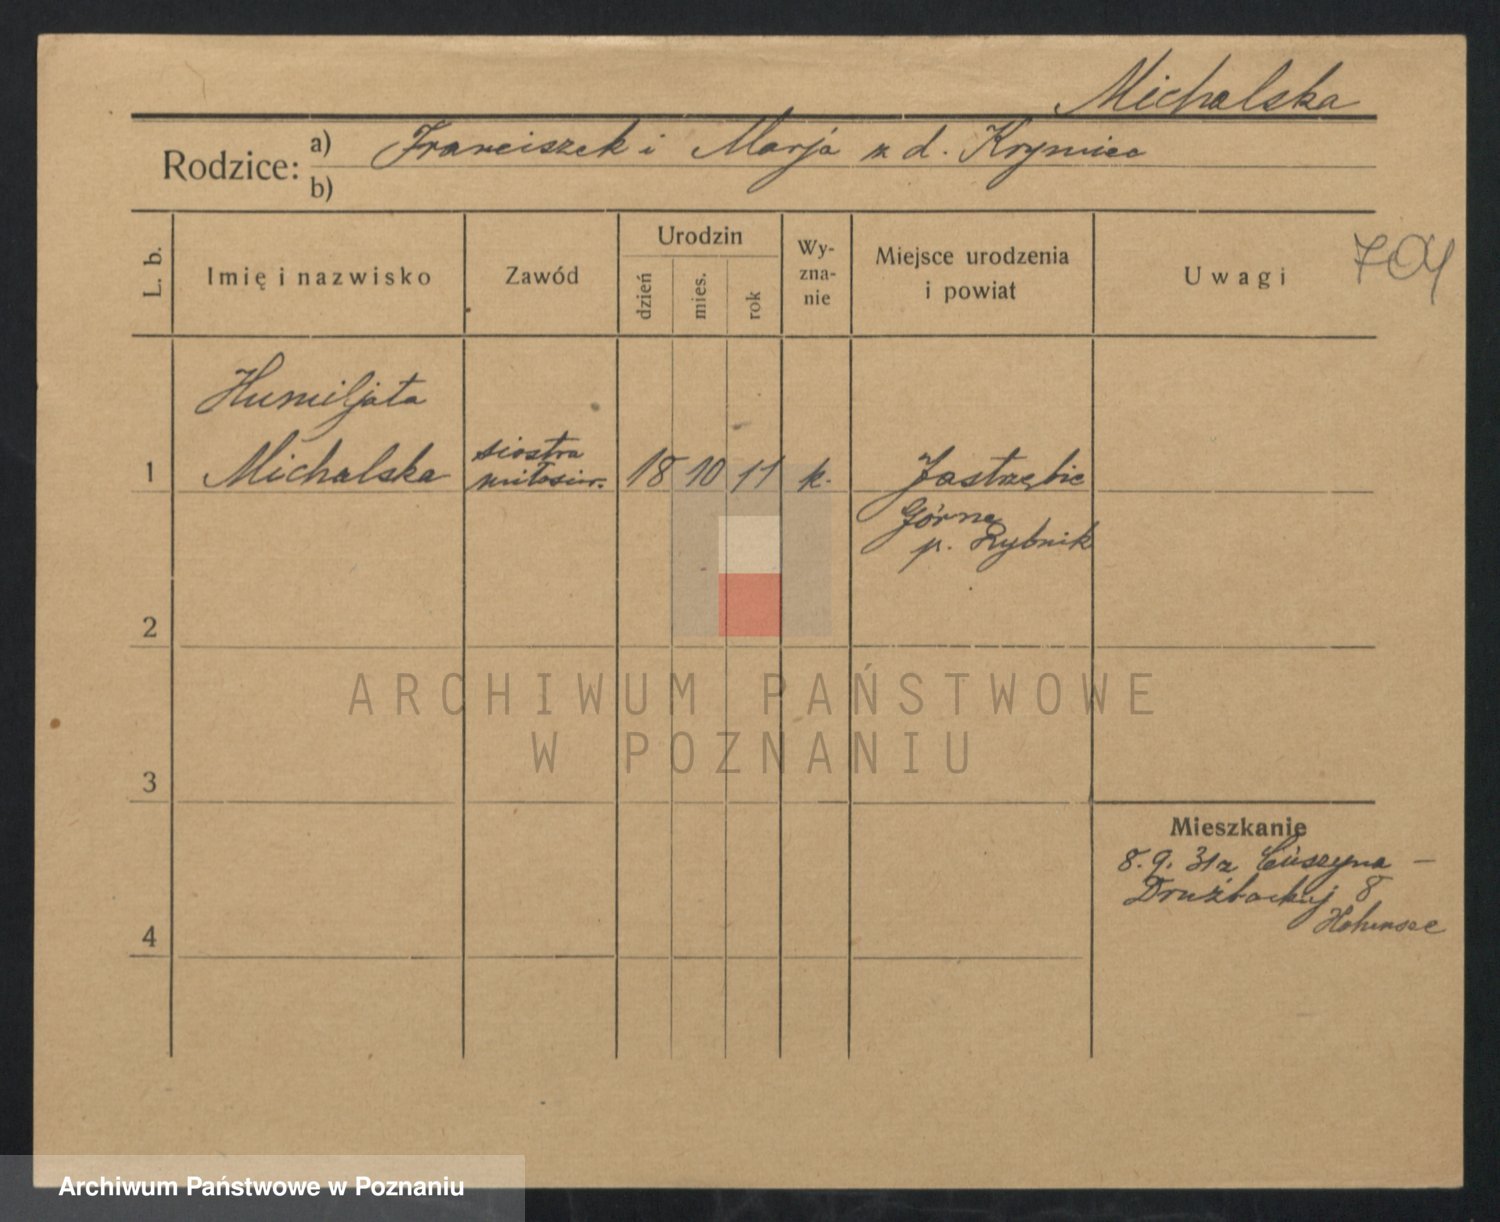 Michalska
Rodzice: a) Franciszek i Marja z d. Krymiec
b)
L. b.
Imię i nazwisko
Zawód
Urodzin
dzień
mies.
rok
Wy-
zna-
nie
Miejsce urodzenia
i powiat
Uwagi
Humiljata
1 Michalska
siostra
miłosier.
18 10 11 k.
Jastrzębie
Górne
p. Rybnik
2
3
4
Mieszkanie
8. 9. 31 z
Drużbackiej 8
ARCHIWUM PAŃSTWOWE
W POZNANIU
Archiwum Państwowe w Poznaniu